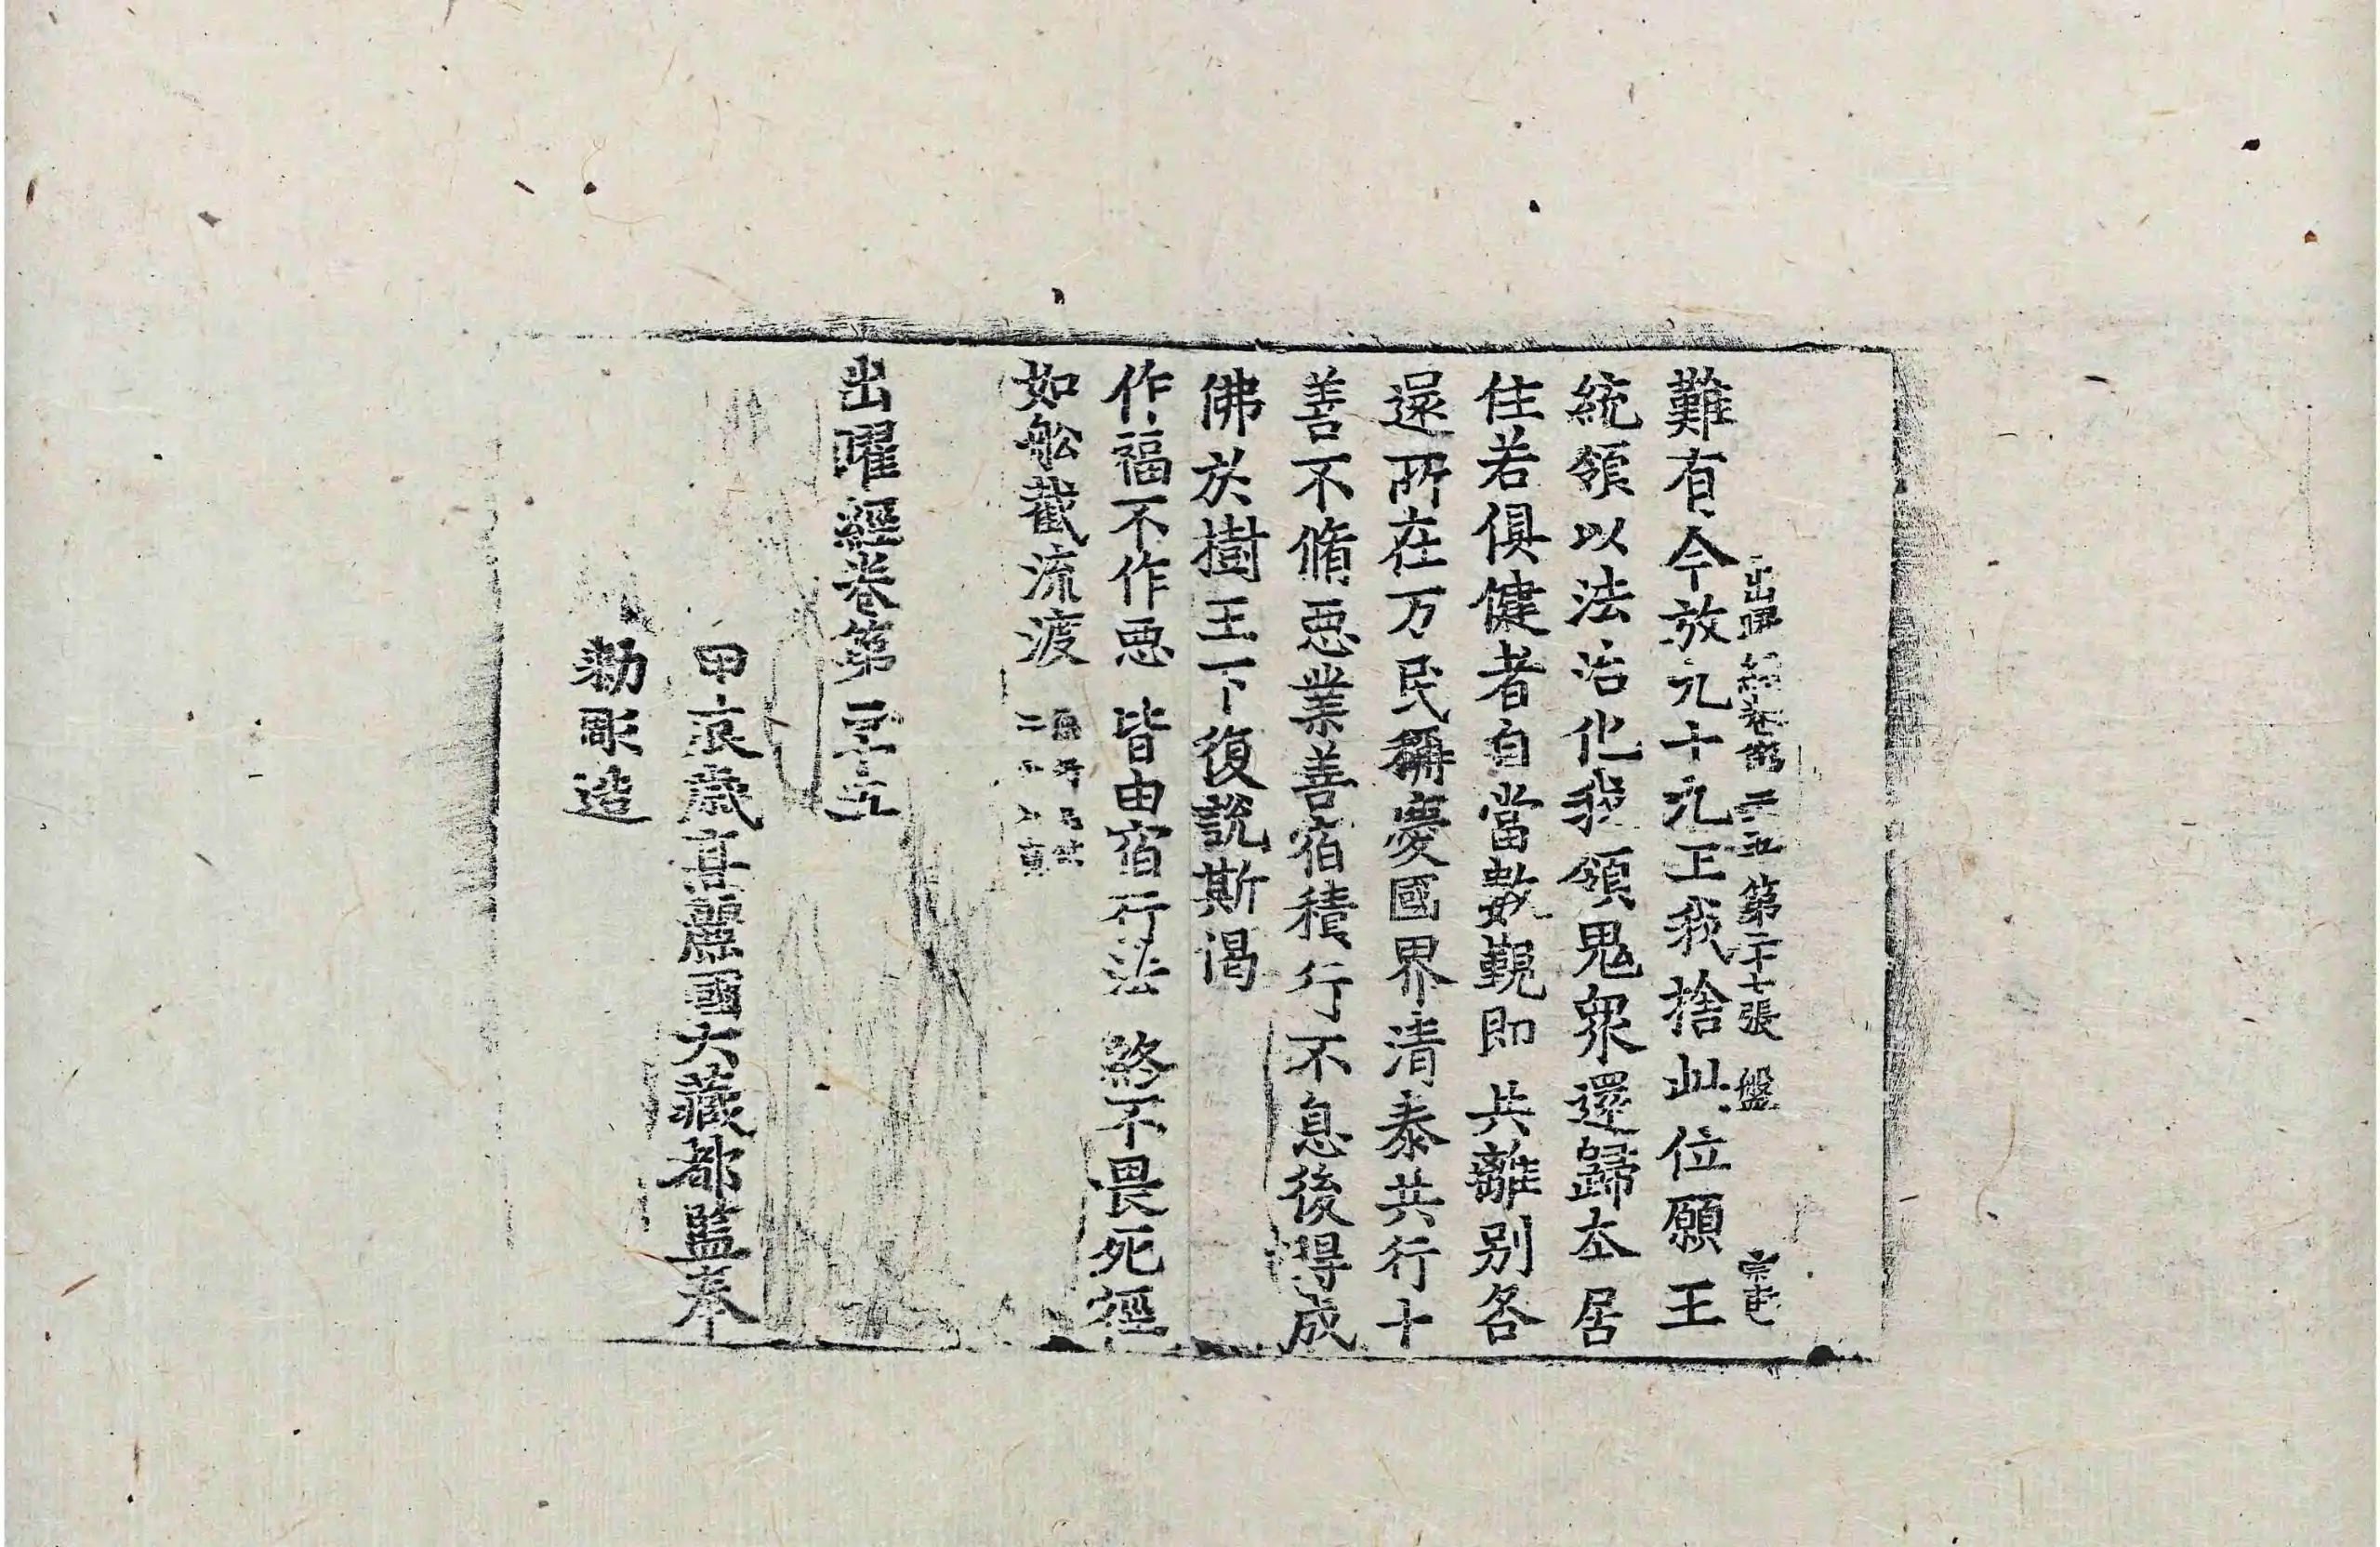 難有今放九十九王我捨此位願王
出曜經卷第二十五 第二十七張 盤
統領以法治化我領鬼衆還歸本居
住若俱健者自當數覲即共離別各
還所在万民稱慶國界清泰共行十
善不脩惡業善宿積行不息後得成
佛於樹王下復說斯偈
作福不作惡 皆由宿行法 終不畏死徑
如舩截流渡
出曜經卷第二十五
甲辰歲高麗國大藏都監奉
勅彫造